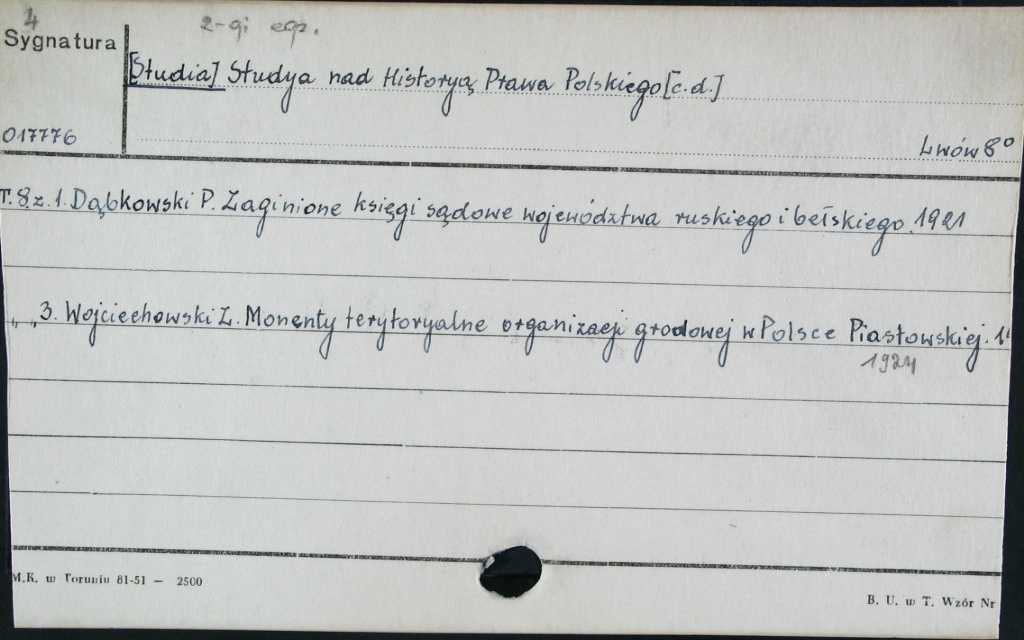 4
2-gi egz.
Sygnatura
[Studia] Studya nad Historyą Prawa Polskiego [c.d.]
017776
Lwów 8°
T. 8. z. 1. Dąbkowski P. Zaginione księgi sądowe województwa ruskiego i bełskiego. 1921
" " 3. Wojciechowski Z. Momenty terytoryalne organizacji grodowej w Polsce Piastowskiej.
1924
M.K. w Toruniu 81-51 — 2500
B. U. w T. Wzór Nr